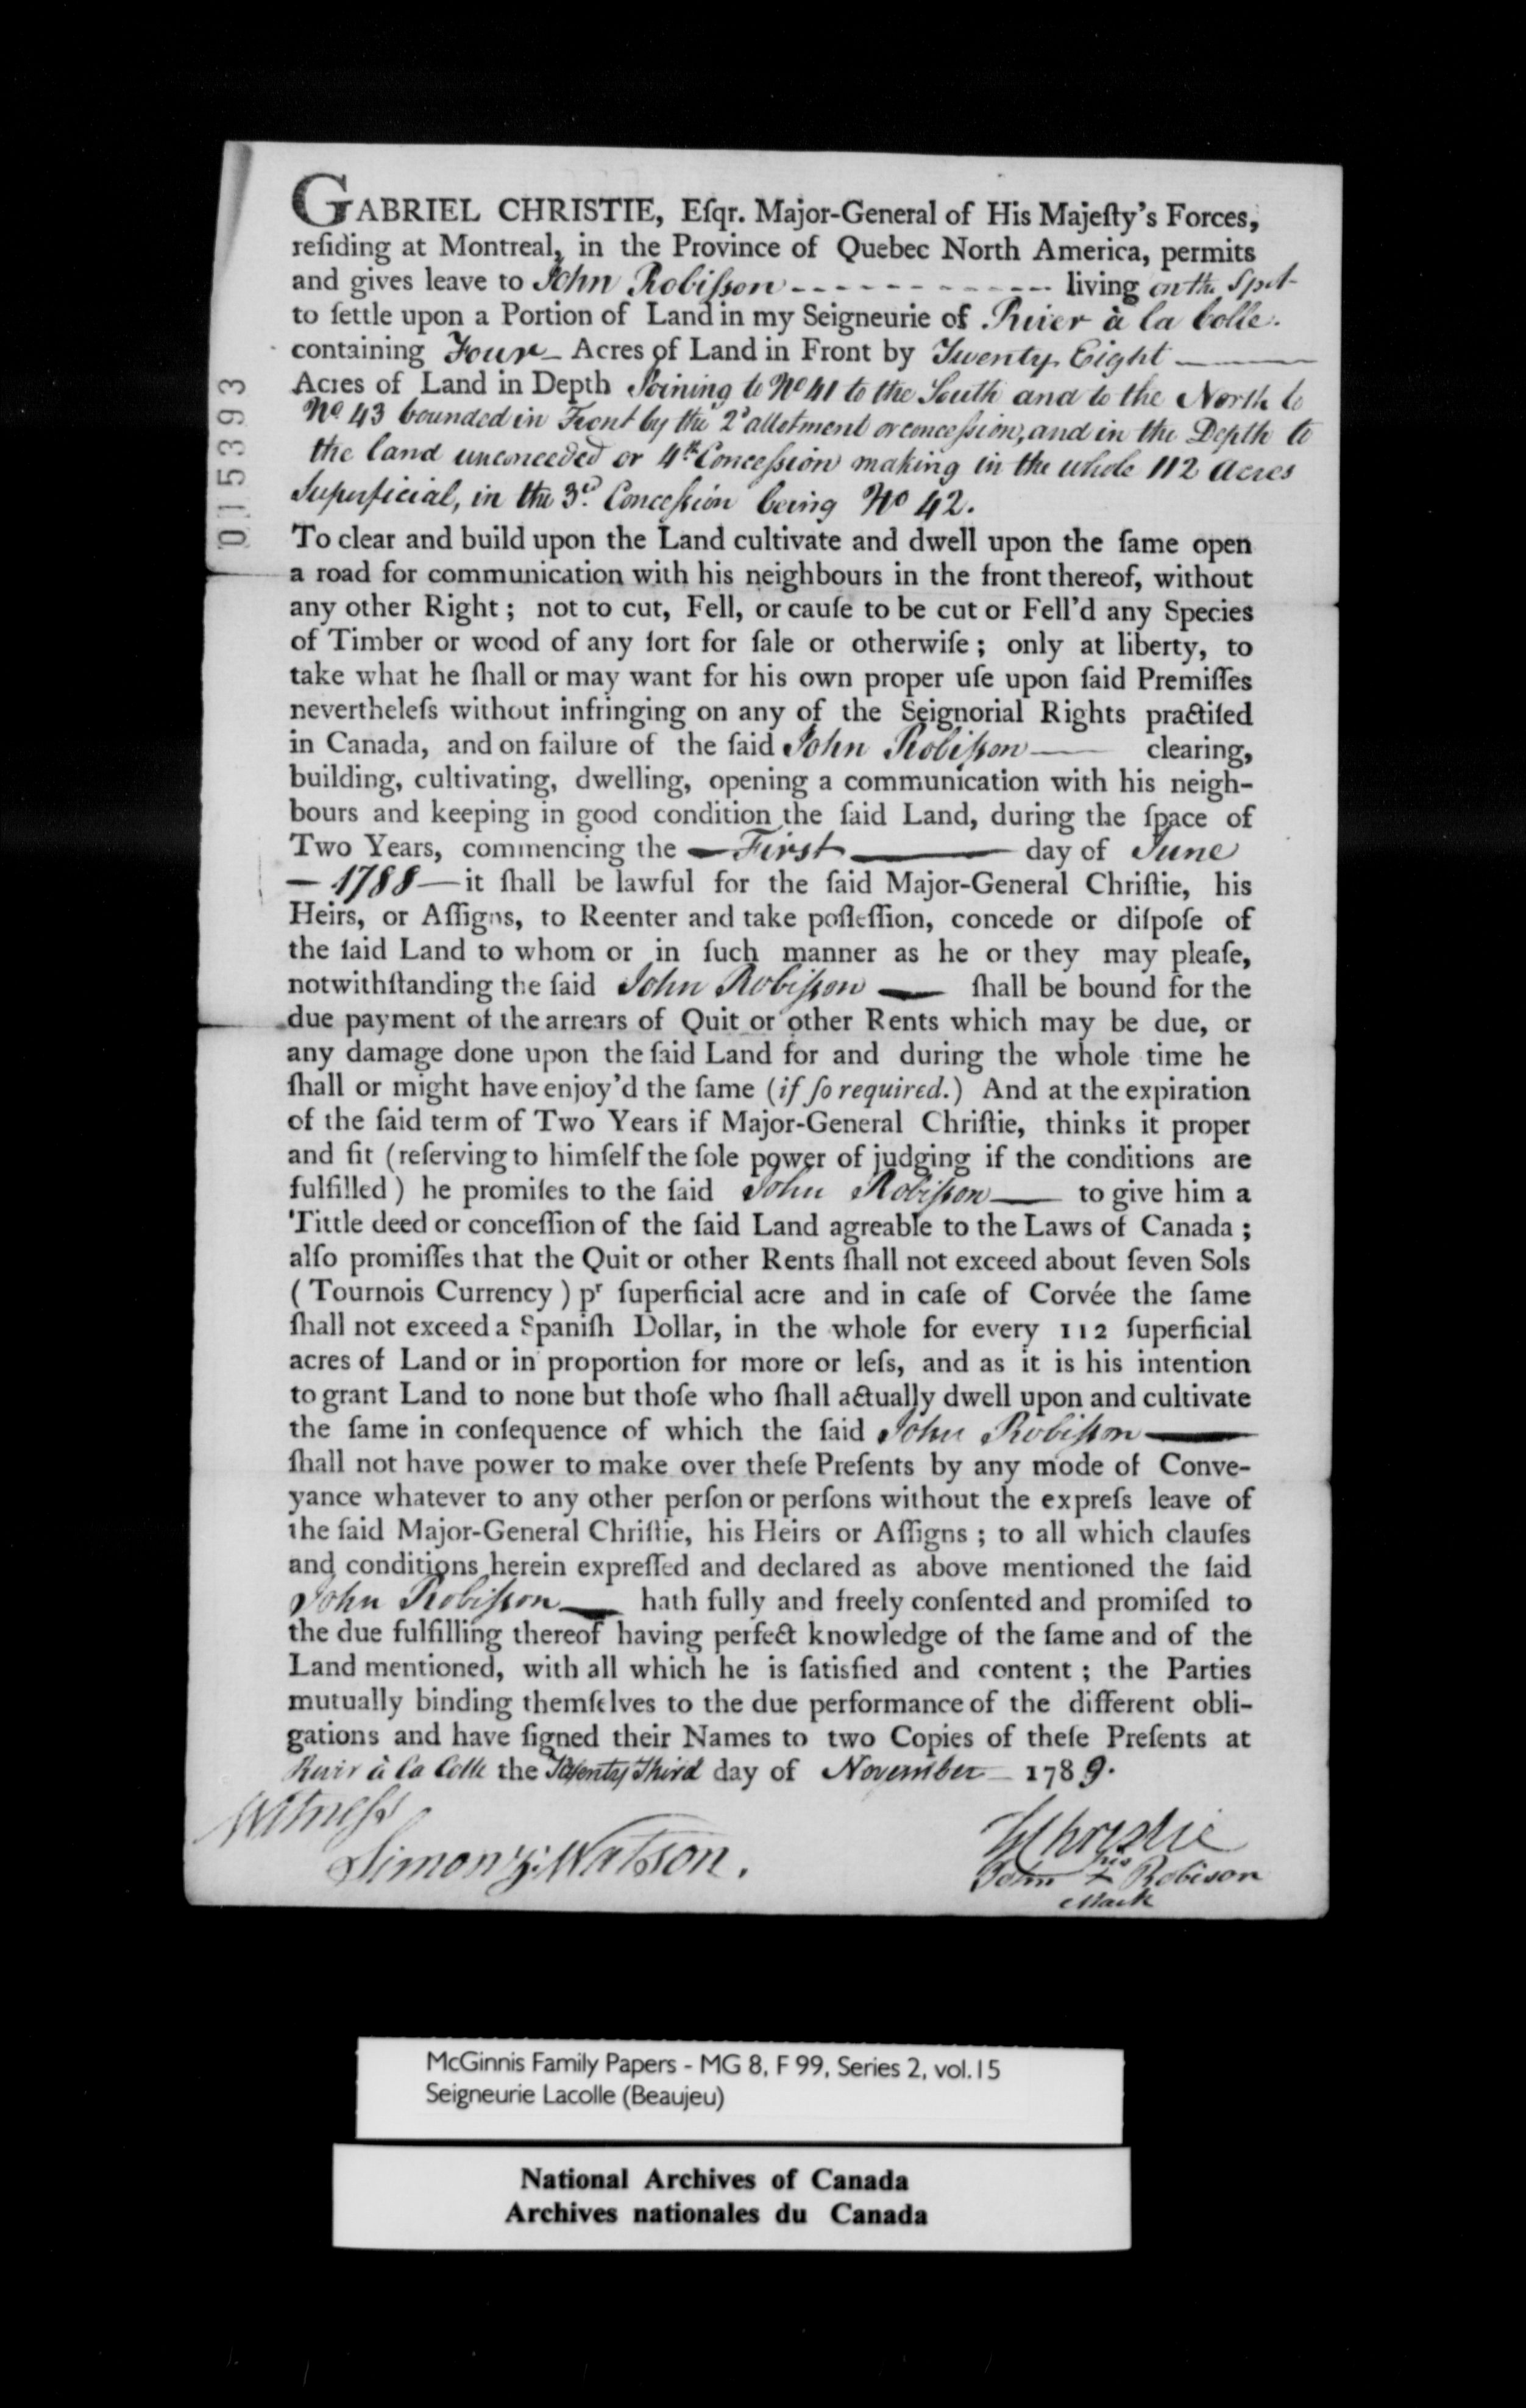 GABRIEL CHRISTIE, Eſqr. Major-General of His Majeſty's Forces,
reſiding at Montreal, in the Province of Quebec North America, permits
and gives leave to John Robiſson - - - - - - - - - - - living on the Spot
to ſettle upon a Portion of Land in my Seigneurie of River à la Colle.
containing Four — Acres of Land in Front by Twenty Eight ———
Acres of Land in Depth Joining to No 41 to the South and to the North to
No 43 bounded in Front by the 2d allotment or conceſsion, and in the Depth to
the land unconceded or 4th Conceſsion making in the whole 112 Acres
Superficial, in the 3d. Conceſsion being No 42.
To clear and build upon the Land cultivate and dwell upon the ſame open
a road for communication with his neighbours in the front thereof, without
any other Right ; not to cut, Fell, or cauſe to be cut or Fell'd any Species
of Timber or wood of any ſort for ſale or otherwiſe ; only at liberty, to
take what he ſhall or may want for his own proper uſe upon ſaid Premiſſes
nevertheleſs without infringing on any of the Seignorial Rights practiſed
in Canada, and on failure of the ſaid John Robiſson —— clearing,
building, cultivating, dwelling, opening a communication with his neigh-
bours and keeping in good condition the ſaid Land, during the ſpace of
Two Years, commencing the — First ——— day of June
— 1788 — it ſhall be lawful for the ſaid Major-General Chriſtie, his
Heirs, or Aſſigns, to Reenter and take poſſeſſion, concede or diſpoſe of
the ſaid Land to whom or in ſuch manner as he or they may pleaſe,
notwithſtanding the ſaid John Robiſson — ſhall be bound for the
due payment of the arrears of Quit or other Rents which may be due, or
any damage done upon the ſaid Land for and during the whole time he
ſhall or might have enjoy'd the ſame (if ſo required.) And at the expiration
of the ſaid term of Two Years if Major-General Chriſtie, thinks it proper
and fit (reſerving to himſelf the ſole power of judging if the conditions are
fulfilled ) he promiſes to the ſaid John Robiſson —— to give him a
Tittle deed or conceſſion of the ſaid Land agreable to the Laws of Canada ;
alſo promiſſes that the Quit or other Rents ſhall not exceed about ſeven Sols
( Tournois Currency ) pr ſuperficial acre and in caſe of Corvée the ſame
ſhall not exceed a Spaniſh Dollar, in the whole for every 112 ſuperficial
acres of Land or in proportion for more or leſs, and as it is his intention
to grant Land to none but thoſe who ſhall actually dwell upon and cultivate
the ſame in conſequence of which the ſaid John Robiſson ——
ſhall not have power to make over theſe Preſents by any mode of Conve-
yance whatever to any other perſon or perſons without the expreſs leave of
the ſaid Major-General Chriſtie, his Heirs or Aſſigns ; to all which clauſes
and conditions herein expreſſed and declared as above mentioned the ſaid
John Robiſson — hath fully and freely conſented and promiſed to
the due fulfilling thereof having perfect knowledge of the ſame and of the
Land mentioned, with all which he is ſatisfied and content ; the Parties
mutually binding themſelves to the due performance of the different obli-
gations and have ſigned their Names to two Copies of theſe Preſents at
River à La Colle the Twenty Third day of November — 1789.
Witneſs
Simon Z: Watson.
G Christie
his
John + Robison
Mark
015393
McGinnis Family Papers - MG 8, F 99, Series 2, vol.15
Seigneurie Lacolle (Beaujeu)
National Archives of Canada
Archives nationales du Canada